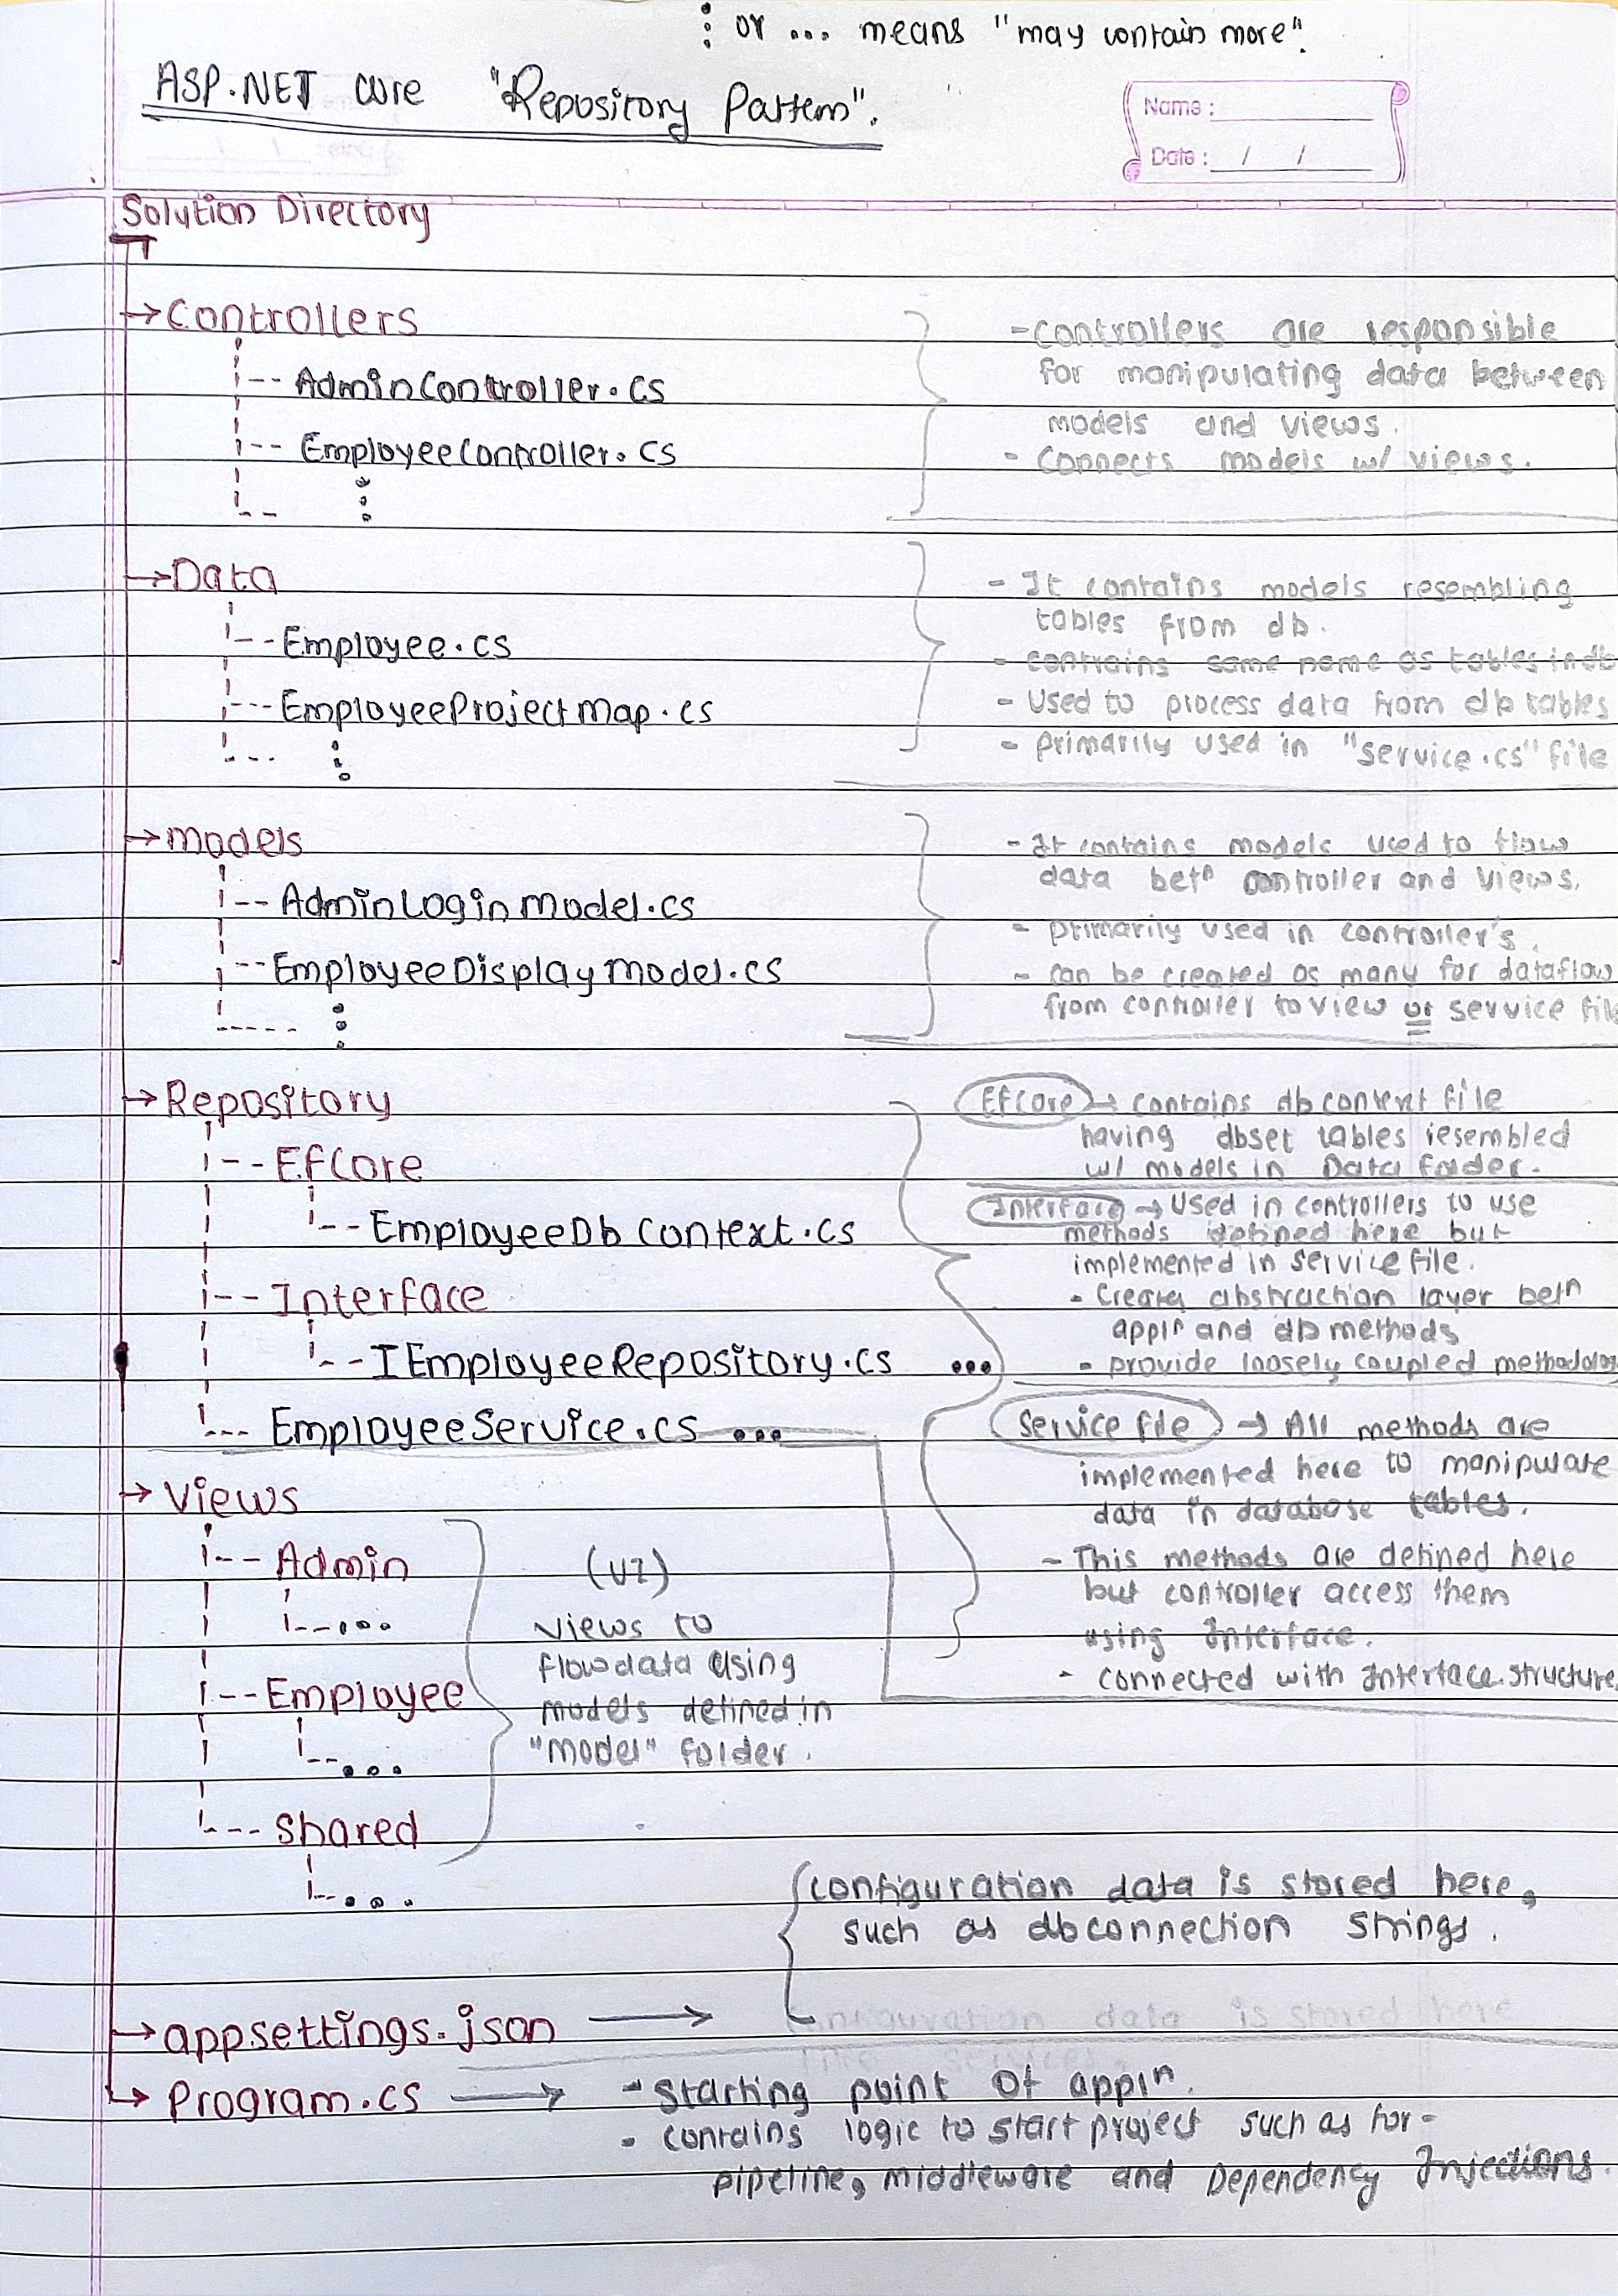 ⋮ or ... means "may contain more".
ASP.NET core "Repository Pattern".
Name :
Date : / /
Solution Directory
→ Controllers
AdminController.cs
EmployeeController.cs
⋮
- controllers are responsible
for manipulating data between
models and views.
- Connects models w/ views.
→ Data
Employee.cs
EmployeeProjectMap.cs
⋮
- It contains models resembling
tables from db.
- contrains same name as tables in db
- Used to process data from db tables
- primarily used in "service.cs" file
→ models
AdminLoginModel.cs
EmployeeDisplayModel.cs
⋮
- It contains models used to flow
data betⁿ controller and views.
- primarily used in controller's.
- can be created as many for dataflow
from controller to view or service file
→ Repository
EfCore
EmployeeDbContext.cs
Interface
IEmployeeRepository.cs ...
EmployeeService.cs ...
EfCore → contains dbcontext file
having dbset tables resembled
w/ models in Data folder.
Interface → Used in controllers to use
methods defined here but
implemented in service file.
- Creates abstraction layer betn
applⁿ and db methods
- provide loosely coupled methodology
Service file → All methods are
implemented here to manipulate
data in database tables.
- This methods are defined here
but controller access them
using Interface.
- connected with Interface structure
→ Views
Admin
...
Employee
...
Shared
...
(UI)
views to
flow data using
models defined in
"model" folder.
configuration data is stored here,
such as dbconnection strings.
→ appsettings.json →
configuration data is stored here
like services,
→ Program.cs → - Starting point of applⁿ.
- contains logic to start project such as for -
pipeline, middleware and Dependency Injections.